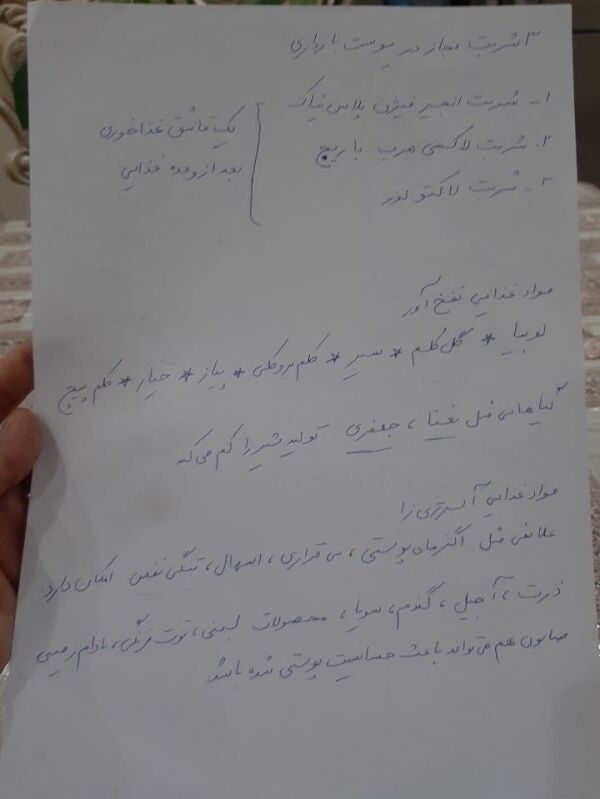 ۳ شربت مجاز در یبوست بارداری
۱- شربت انجیر فیژن پلاس نیاک
۲. شربت لاکسی هرب باریج
۳- شربت لاکتولوز
یک قاشق غذاخوری
بعد از وعده غذایی
مواد غذایی نفخ آور
لوبیا * گل کلم * سیر * کلم بروکلی * پیاز * خیار * کلم پیچ
گیاهانی مثل نعنا ، جعفری تولید شیر را کم می کند
مواد غذایی آلرژی زا
علائمی مثل اگزمای پوستی ، بی قراری ، اسهال ، تنگی نفس امکان دارد.
ذرت ، آجیل ، گندم ، سویا ، محصولات لبنی ، توت فرنگی ، بادام زمینی
صابون هم می تواند باعث حساسیت پوستی شده باشد